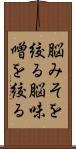 脳みそを
絞る脳味
噌を絞る